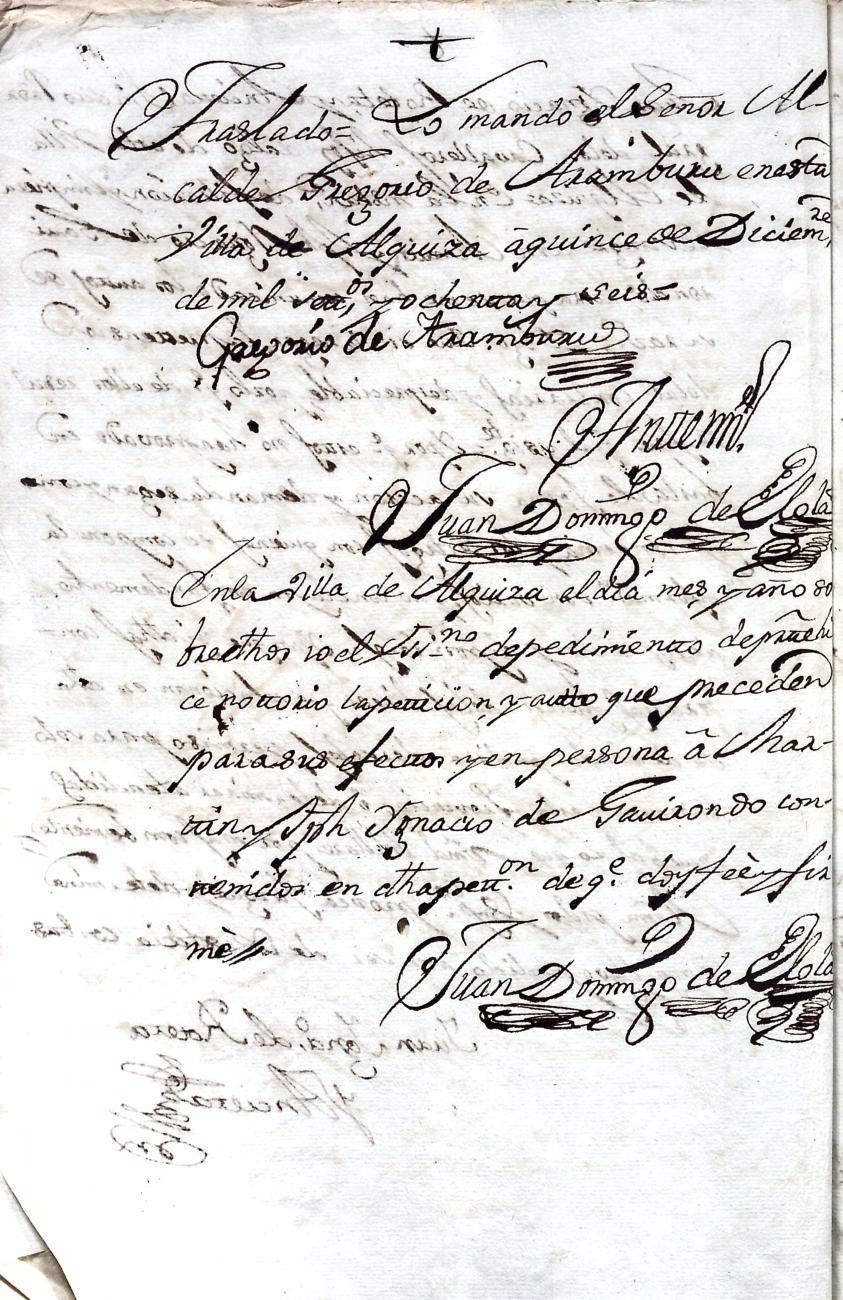 +
Traslado= Lo mando el Señor Al-
calde Gregorio de Aramburu en esta
Villa de Alquiza â quince de Diciem.re
de mil sett.os y ochenta y seis=
Gregorio de Aramburu
Antemi
Juan Domingo de Elola
En la Villa de Alquiza el dia mes y año so
bredhos io el SSno de pedimiento de
ce nottorio la petticion, y autto que preceden
para sus efecttos y en persona â Mar-
tin y Jph Ygnacio de Gavirondo con-
tenidos en dha pett.on de q.e doy feè y fir
mè
Juan Domingo de Elola